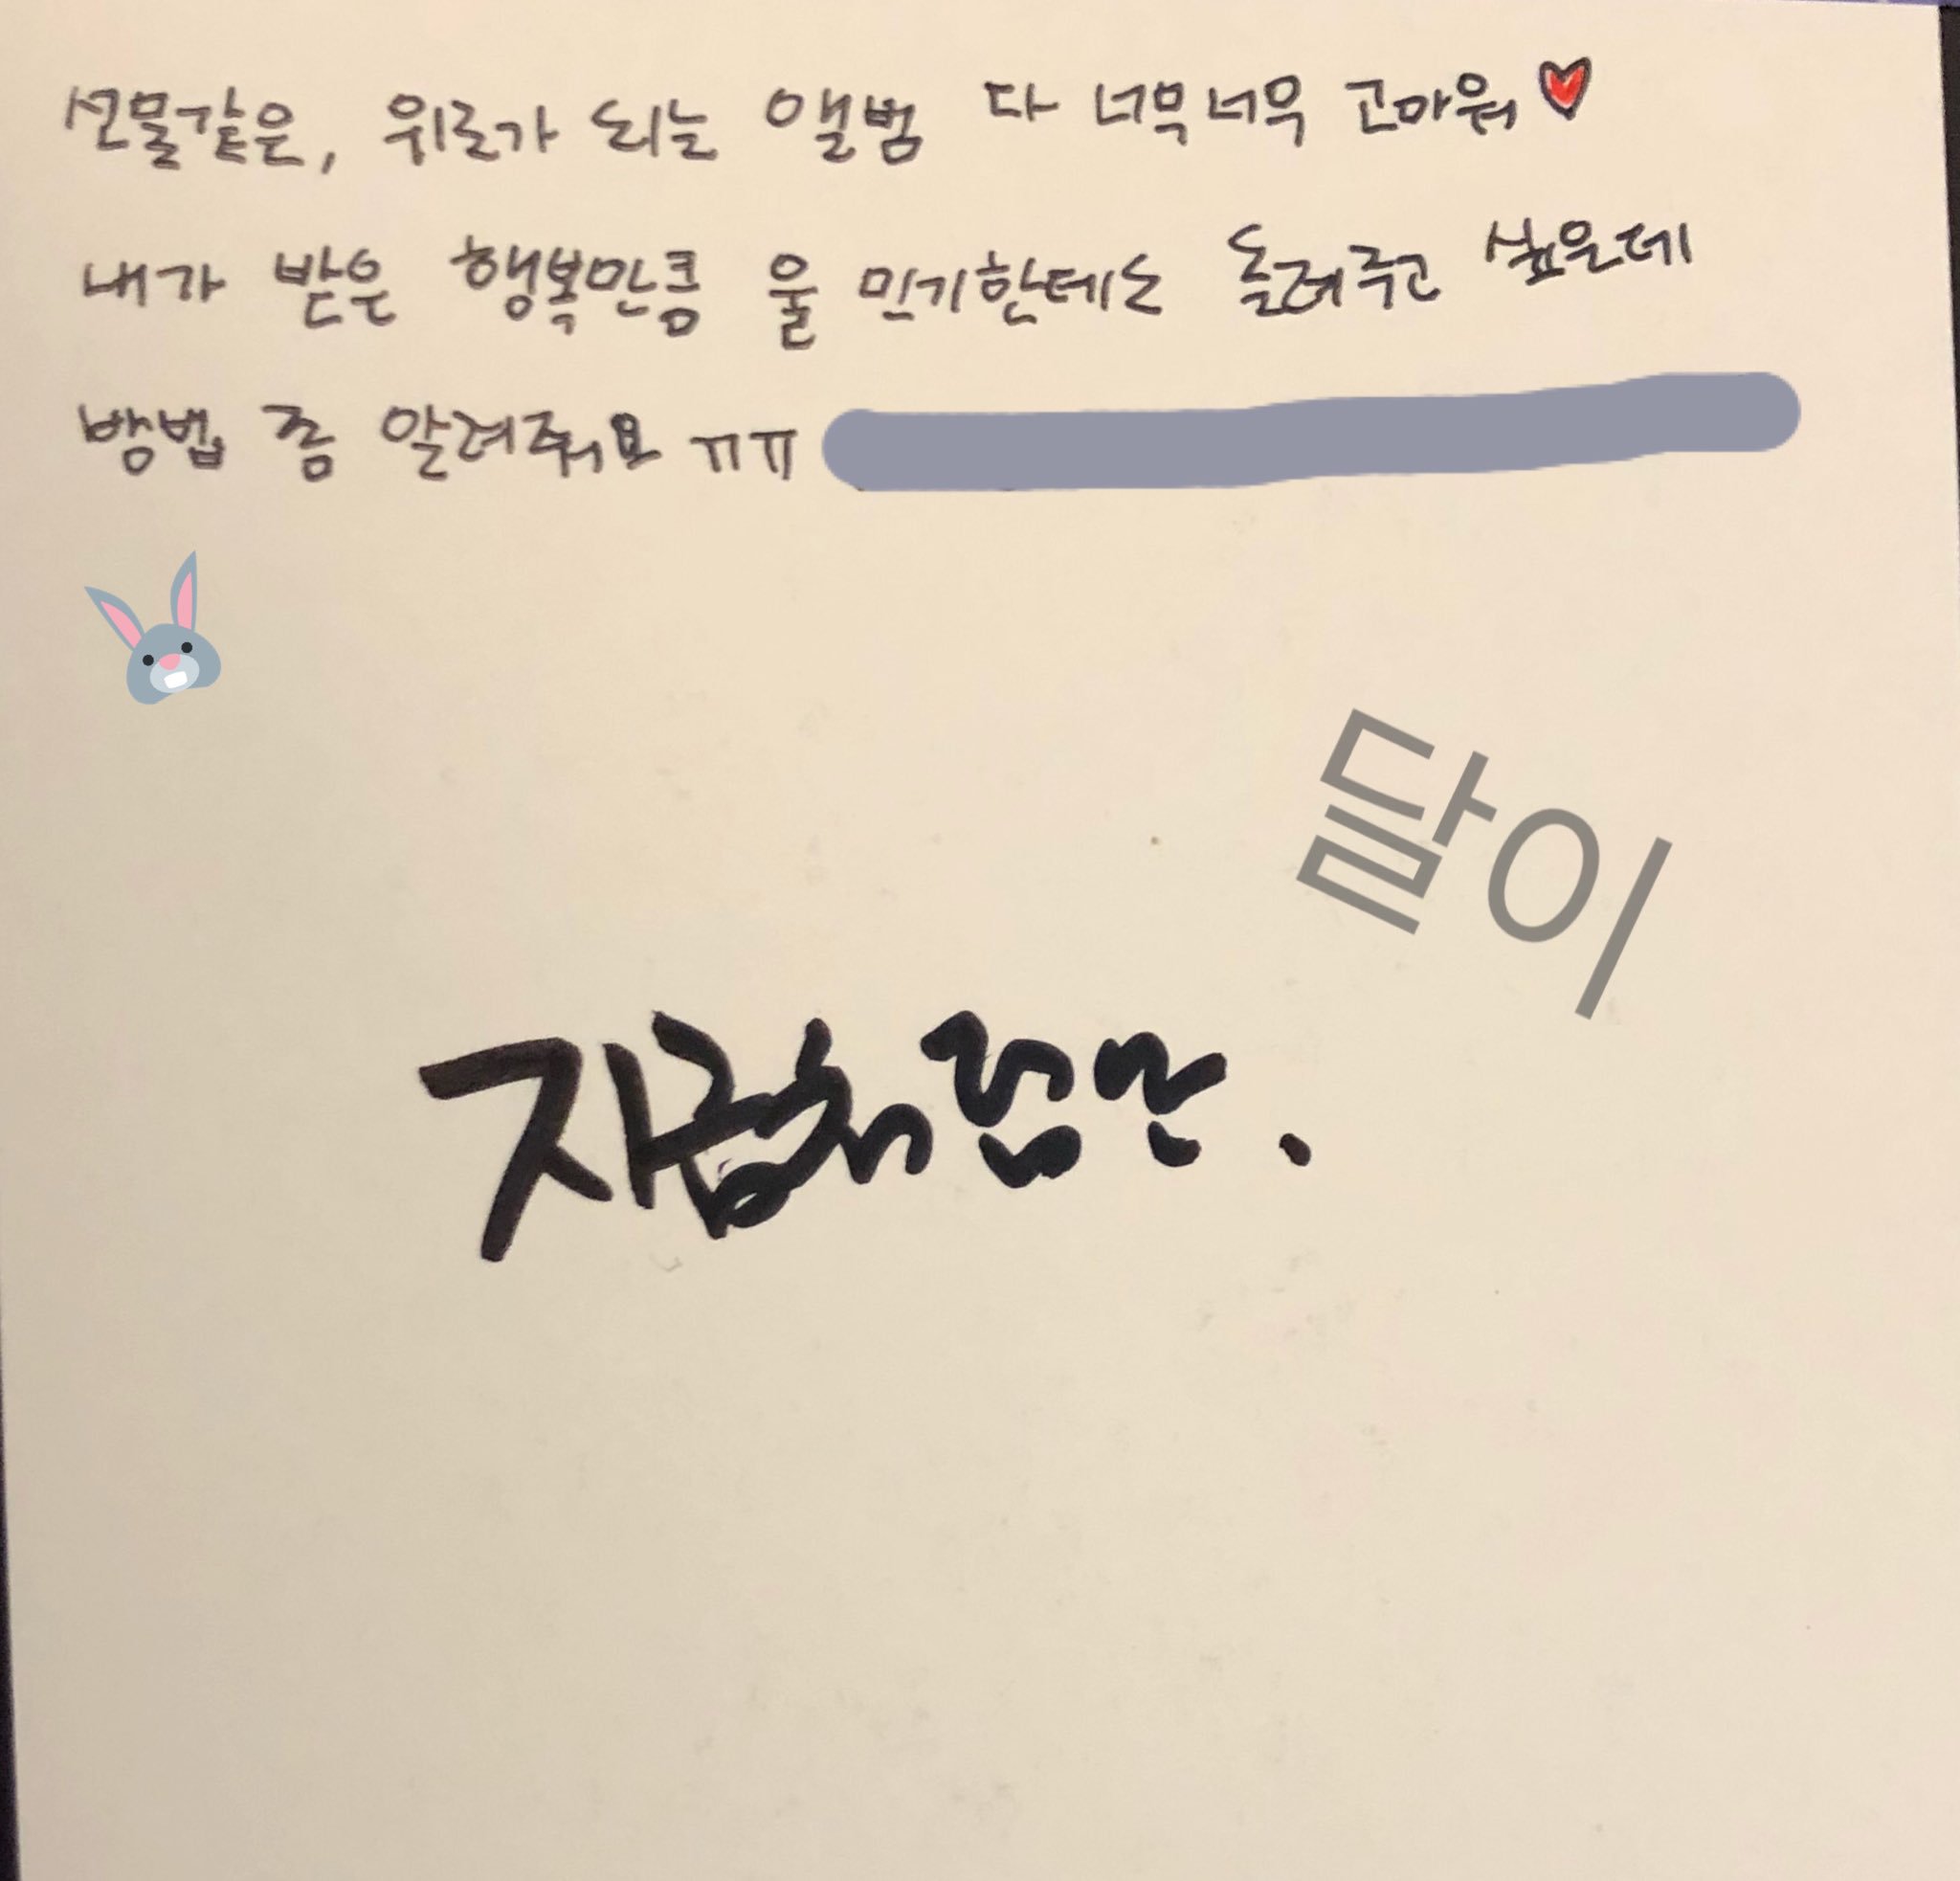 선물같은, 위로가 되는 앨범 다 너무너무 고마워♥
내가 받은 행복만큼 울 민기한테는 돌려주고 싶은데
방법 좀 알려줘요 ㅠㅠ
달이
지금처럼만.